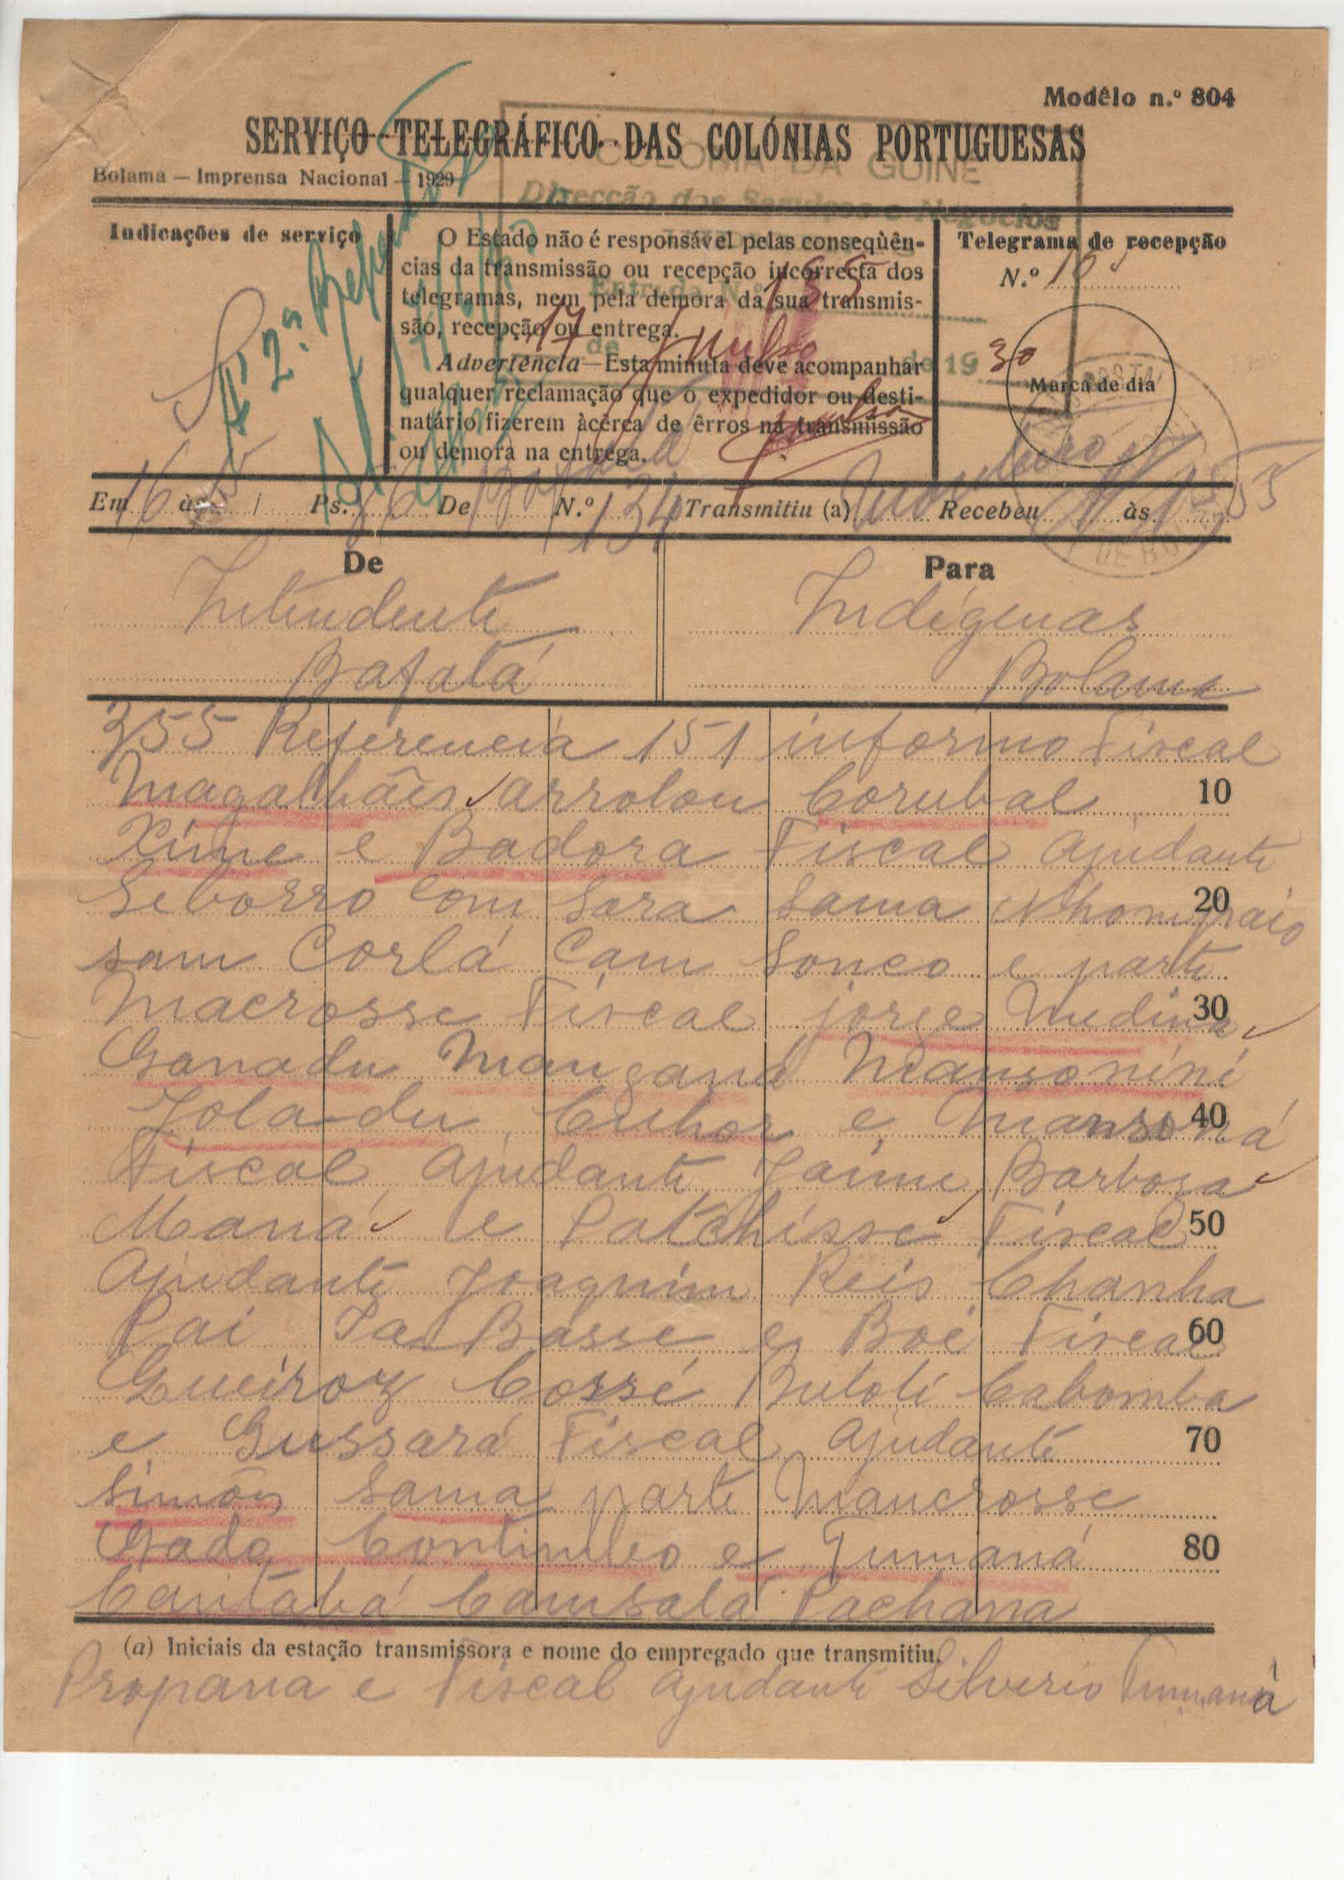 Modêlo n.º 804
SERVIÇO TELEGRÁFICO DAS COLÓNIAS PORTUGUESAS
COLONIA DA GUINÉ
Bolama — Imprensa Nacional — 1929
Direcção dos Serviços e Negocios
Indicações de serviço
O Estado não é responsável pelas conseqùên-
cias da transmissão ou recepção incorrecta dos
telegramas, nem pela demora da sua transmis-
são, recepção ou entrega.
Advertência—Esta minuta deve acompanhar
qualquer reclamação que o expedidor ou desti-
natário fizerem àcêrca de êrros na transmissão
ou demora na entrega.
Telegrama de recepção
N.º 10
Marca de dia
Entrada N.º 155
17 de Junho de 1930
A' 2ª
Em 16 às Ps. De Bafatá N.º 134 Transmitiu (a) Recebeu às
De
Para
Intendente
Indígenas
Bafatá
Bolama
355 Referencia 151 informo Fiscal
Magalhães arrolou Corubal 10
Xime e Badora Fiscal ajudante
Seborro com Sora Sama 20
sam Corlá Cam Sonco e parte
Macrosse Fiscal jorge Medina 30
Ganadu Mangana Mansonini
Joladu Cuhor e Mansoná 40
Fiscal ajudante Jaime Barbosa
Maná e Patchisse Fiscal 50
Ajudante Joaquim Reis Chanha
Pai Ja Basse e Boé Fiscal 60
Gueiroz Cossé Butoli Cabomba
e Gussará Fiscal ajudante 70
Simões Sama parte Mancrosse
Gada Contimbo e Tumaná 80
Cantabá Camsalá Pachana
(a) Iniciais da estação transmissora e nome do empregado que transmitiu.
Propana e Fiscal ajudante Silverio Tumaná